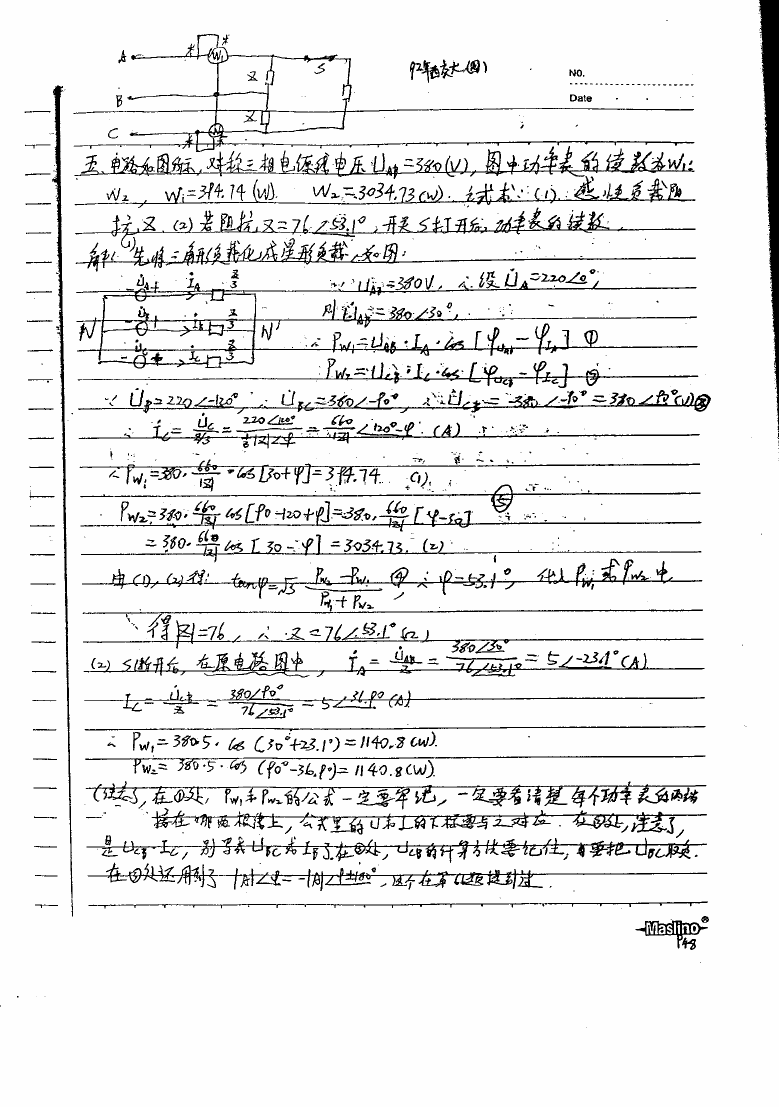 A * * W₁
S
92年西交大(图)
NO.
Z
B
Date
Z
C * W *
五. 电路如图所示, 对称三相电源线电压 U_AB=380(V), 图中功率表的读数为W₁:
W₂, W₁=394.74(W). W₂=3034.73(W). 试求: (1). 感性负载阻
抗Z. (2) 若阻抗Z=76∠53.1°, 开关S打开后, 功率表的读数.
解: (1) 先将三角形负载化成星形负载, 如图:
- U̇A + İA Z/3
∵ U_AB=380V, ∴ 设U̇A=220∠0°,
N - U̇B + İB Z/3 N'
则U̇AB=380∠30°,
∴ PW₁=U_AB·I_A·cos[φUAB-φIA] ①
- U̇C + İC Z/3
PW₂=U_CB·I_C·cos[φUCB-φIC] ②
∵ U̇B=220∠-120°, ∴ U̇BC=380∠-90°, ∴ U̇CB=-380∠-90°=380∠90°(V) ③
∴ İC=U̇C/(Z/3)=220∠120°/(⅓|Z|∠φ)=660/|Z|∠120°-φ (A)
∴ PW₁=380·660/|Z|·cos[30+φ]=394.74 (1).
PW₂=380·660/|Z| cos[90-120+φ]=380·660/|Z| [φ-30] ⑤
=380·660/|Z| cos[30-φ]=3034.73. (2)
由(1),(2)得: tanφ=√3 (PW₂-PW₁)/(PW₁+PW₂) ④, ∴ φ=53.1°, 代入PW₁或PW₂中
得|Z|=76, ∴ Z=76∠53.1°(Ω)
(2) S断开后, 在原电路图中, İA=U̇AB/Z=380∠30°/76∠53.1°=5∠-23.1°(A)
I_C=U̇CB/Z=380∠90°/76∠53.1°=5∠36.9°(A)
∴ PW₁=380·5·cos(30°+23.1°)=1140.8(W).
PW₂=380·5·cos(90°-36.9°)=1140.8(W).
(注意), 在①处, PW₁和PW₂的公式一定要牢记, 一定要看清楚每个功率表的两端
接在哪两根线上, 公式里的U和I的下标要与之对应. 在②处, 注意了,
是U_CB·I_C, 别写成U_BC或I_B了. 在③处, U_CB的计算方法要记住, 要把U_BC取负.
在③处还用到了|A|∠φ=-|A|∠φ±180°, 这个在第题提到过.
Maslino®
P48